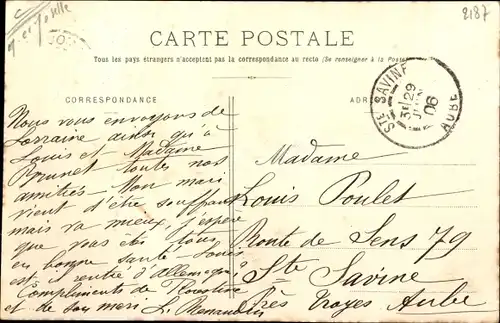 C
M. et Moselle
2187
CARTE POSTALE
Tous les pays étrangers n'acceptent pas la correspondance au recto (Se renseigner à la Poste)
CORRESPONDANCE
ADR
STE SAVINE
3E 29
JUIN
06
AUBE
Nous vous envoyons de
Lorraine ainsi qu'à
Louis et Madame
Prunet toutes nos
amitiés. Mon mari
vient d'être souffrant
mais va mieux, j'espère
que vous êtes tous
en bonne santé. Louis
est il rentré d'Allemagne
Compliments de Florentine
et de son mari L. Renaudin
Madame
Louis Poulet
Route de Sens 79
Ste Savine
Près Troyes Aube